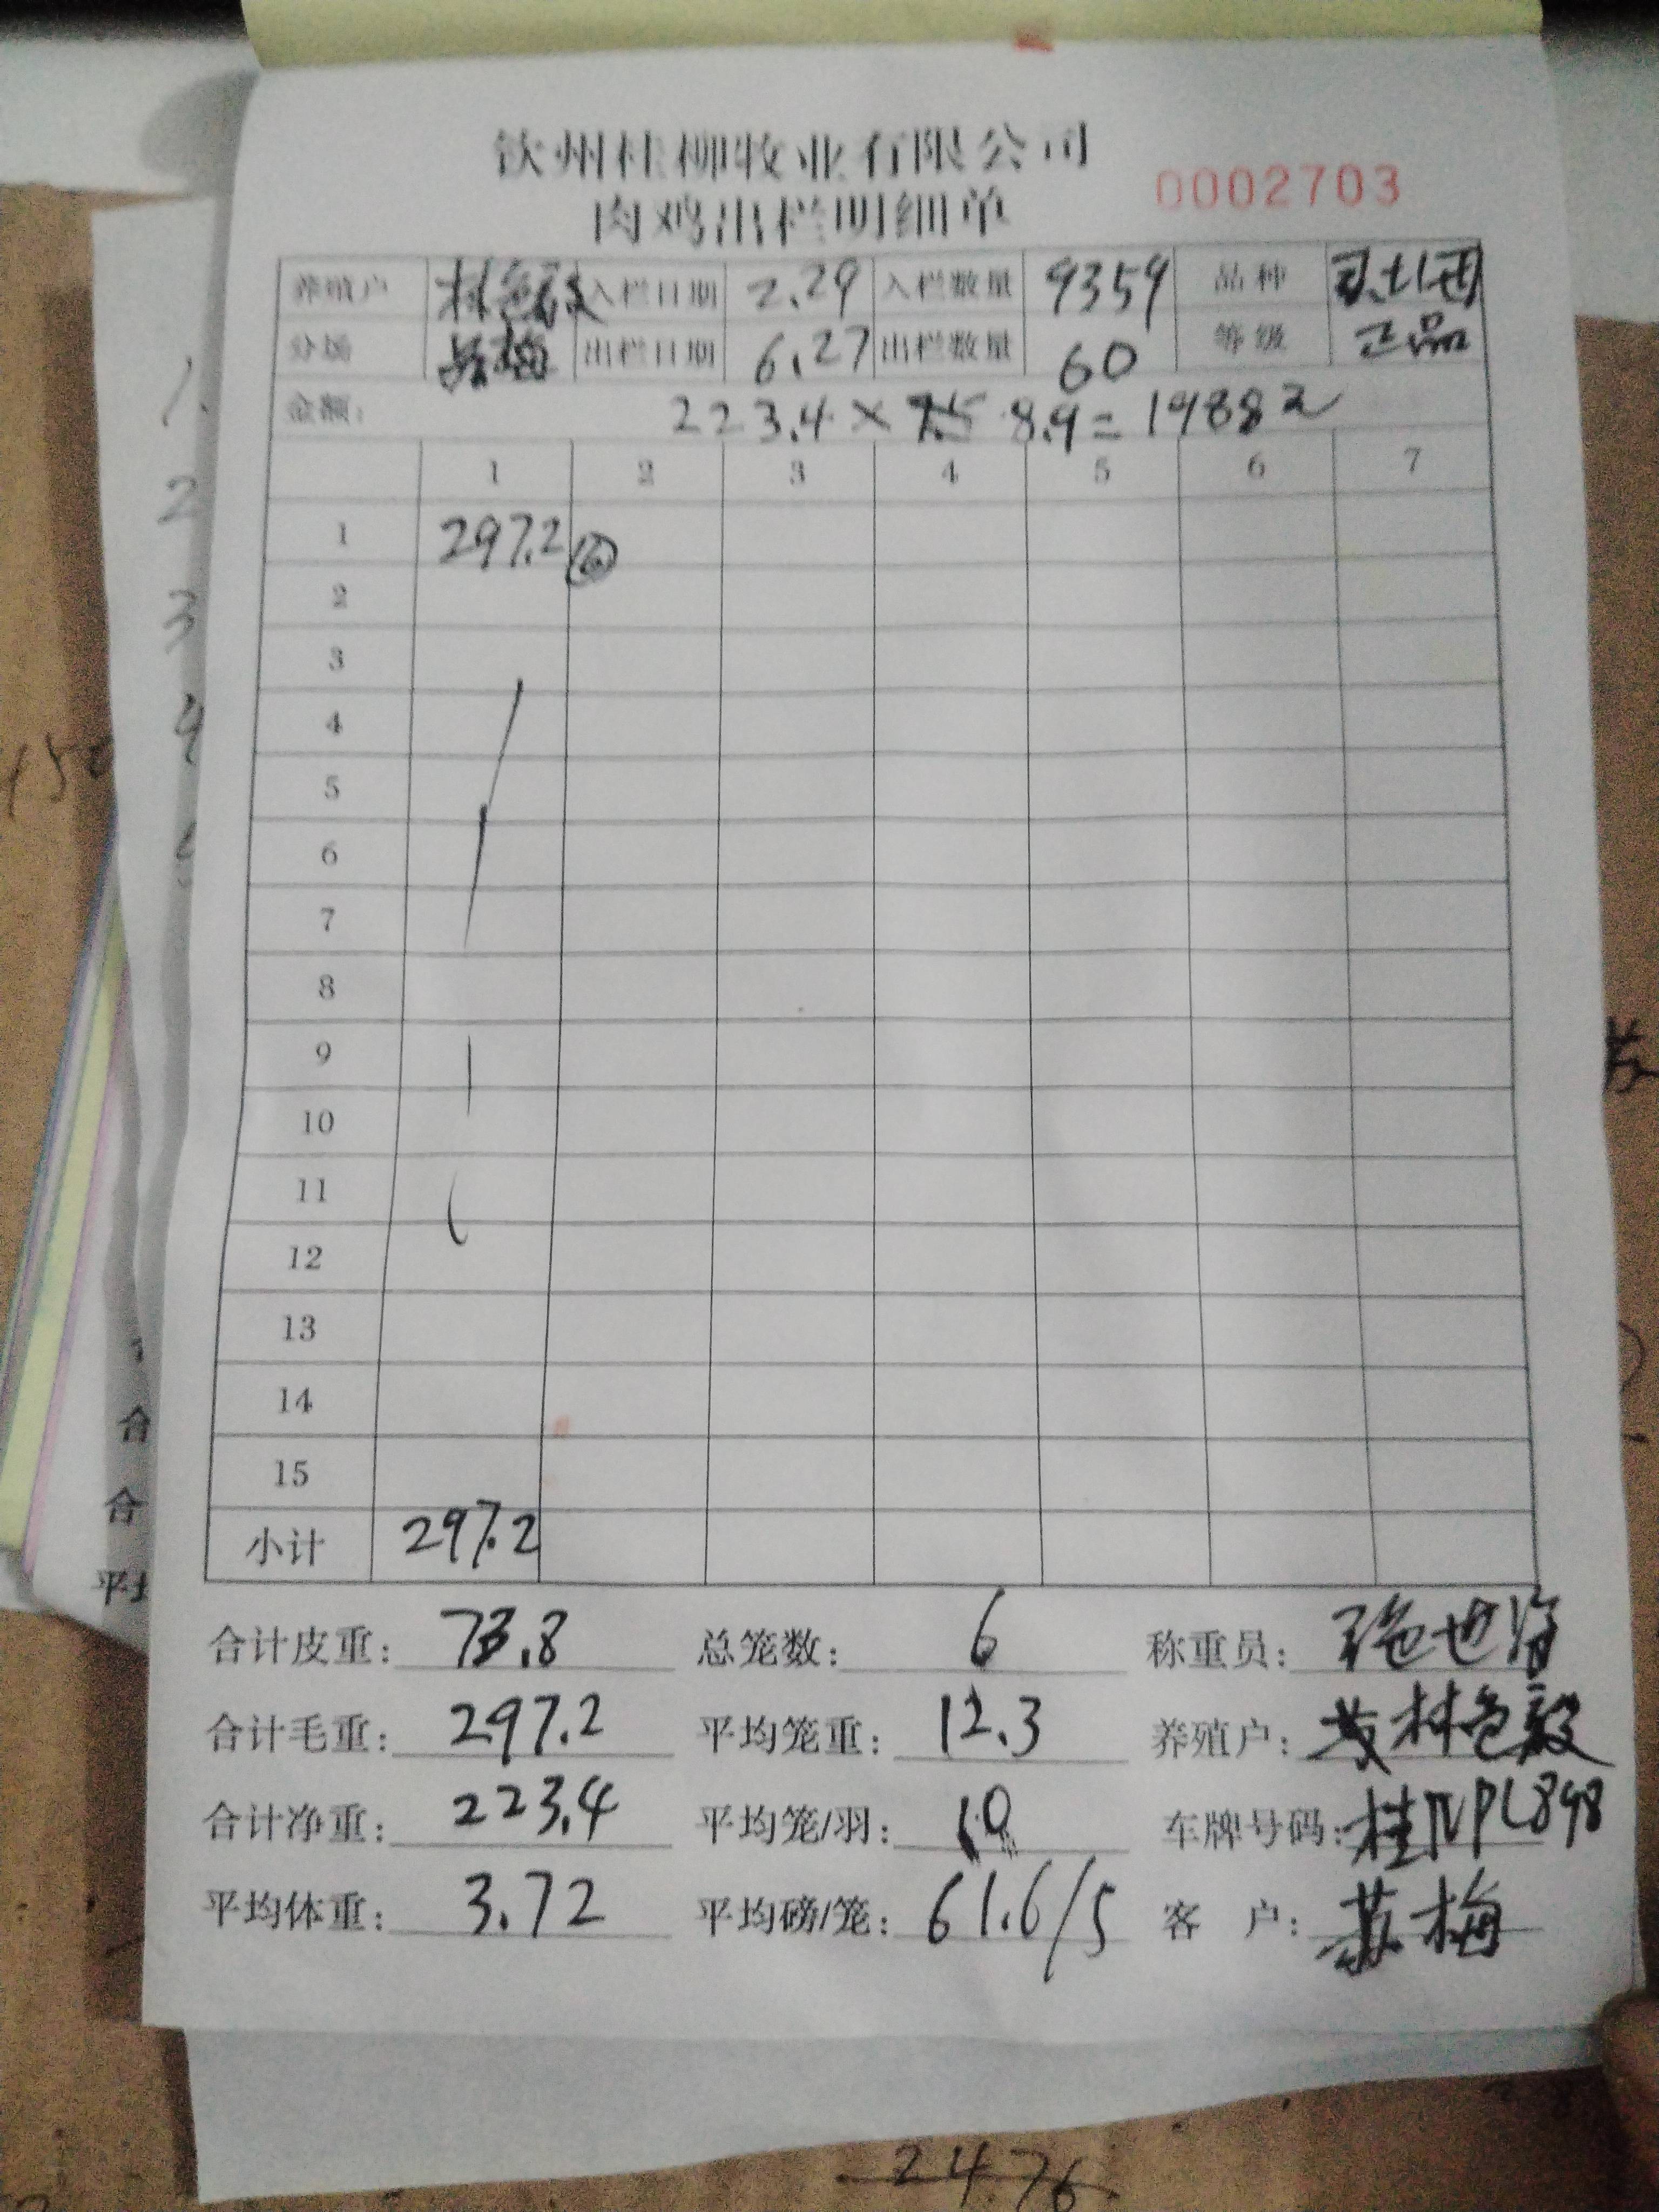 钦州桂柳牧业有限公司
肉鸡出栏明细单 0002703
养殖户 入栏日期 2.29 入栏数量 9359 品种
分场 苏梅 出栏日期 6.27 出栏数量 60 等级 正品
金额: 223.4 × 7.5 8.9 = 1988 2
1 2 3 4 5 6 7
1 297.2 ⑥
2
3
4
5
6
7
8
9
10
11
12
13
14
15
小计 297.2
合计皮重: 73.8 总笼数: 6 称重员:
合计毛重: 297.2 平均笼重: 12.3 养殖户:
合计净重: 223.4 平均笼/羽: 10 车牌号码: 桂NPL898
平均体重: 3.72 平均磅/笼: 61.6/5 客 户: 苏梅
1.
2
3
4
150
合
合
平均
2476